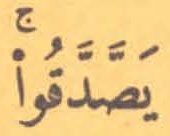 يَصَّدَّقُوا۟ۚ